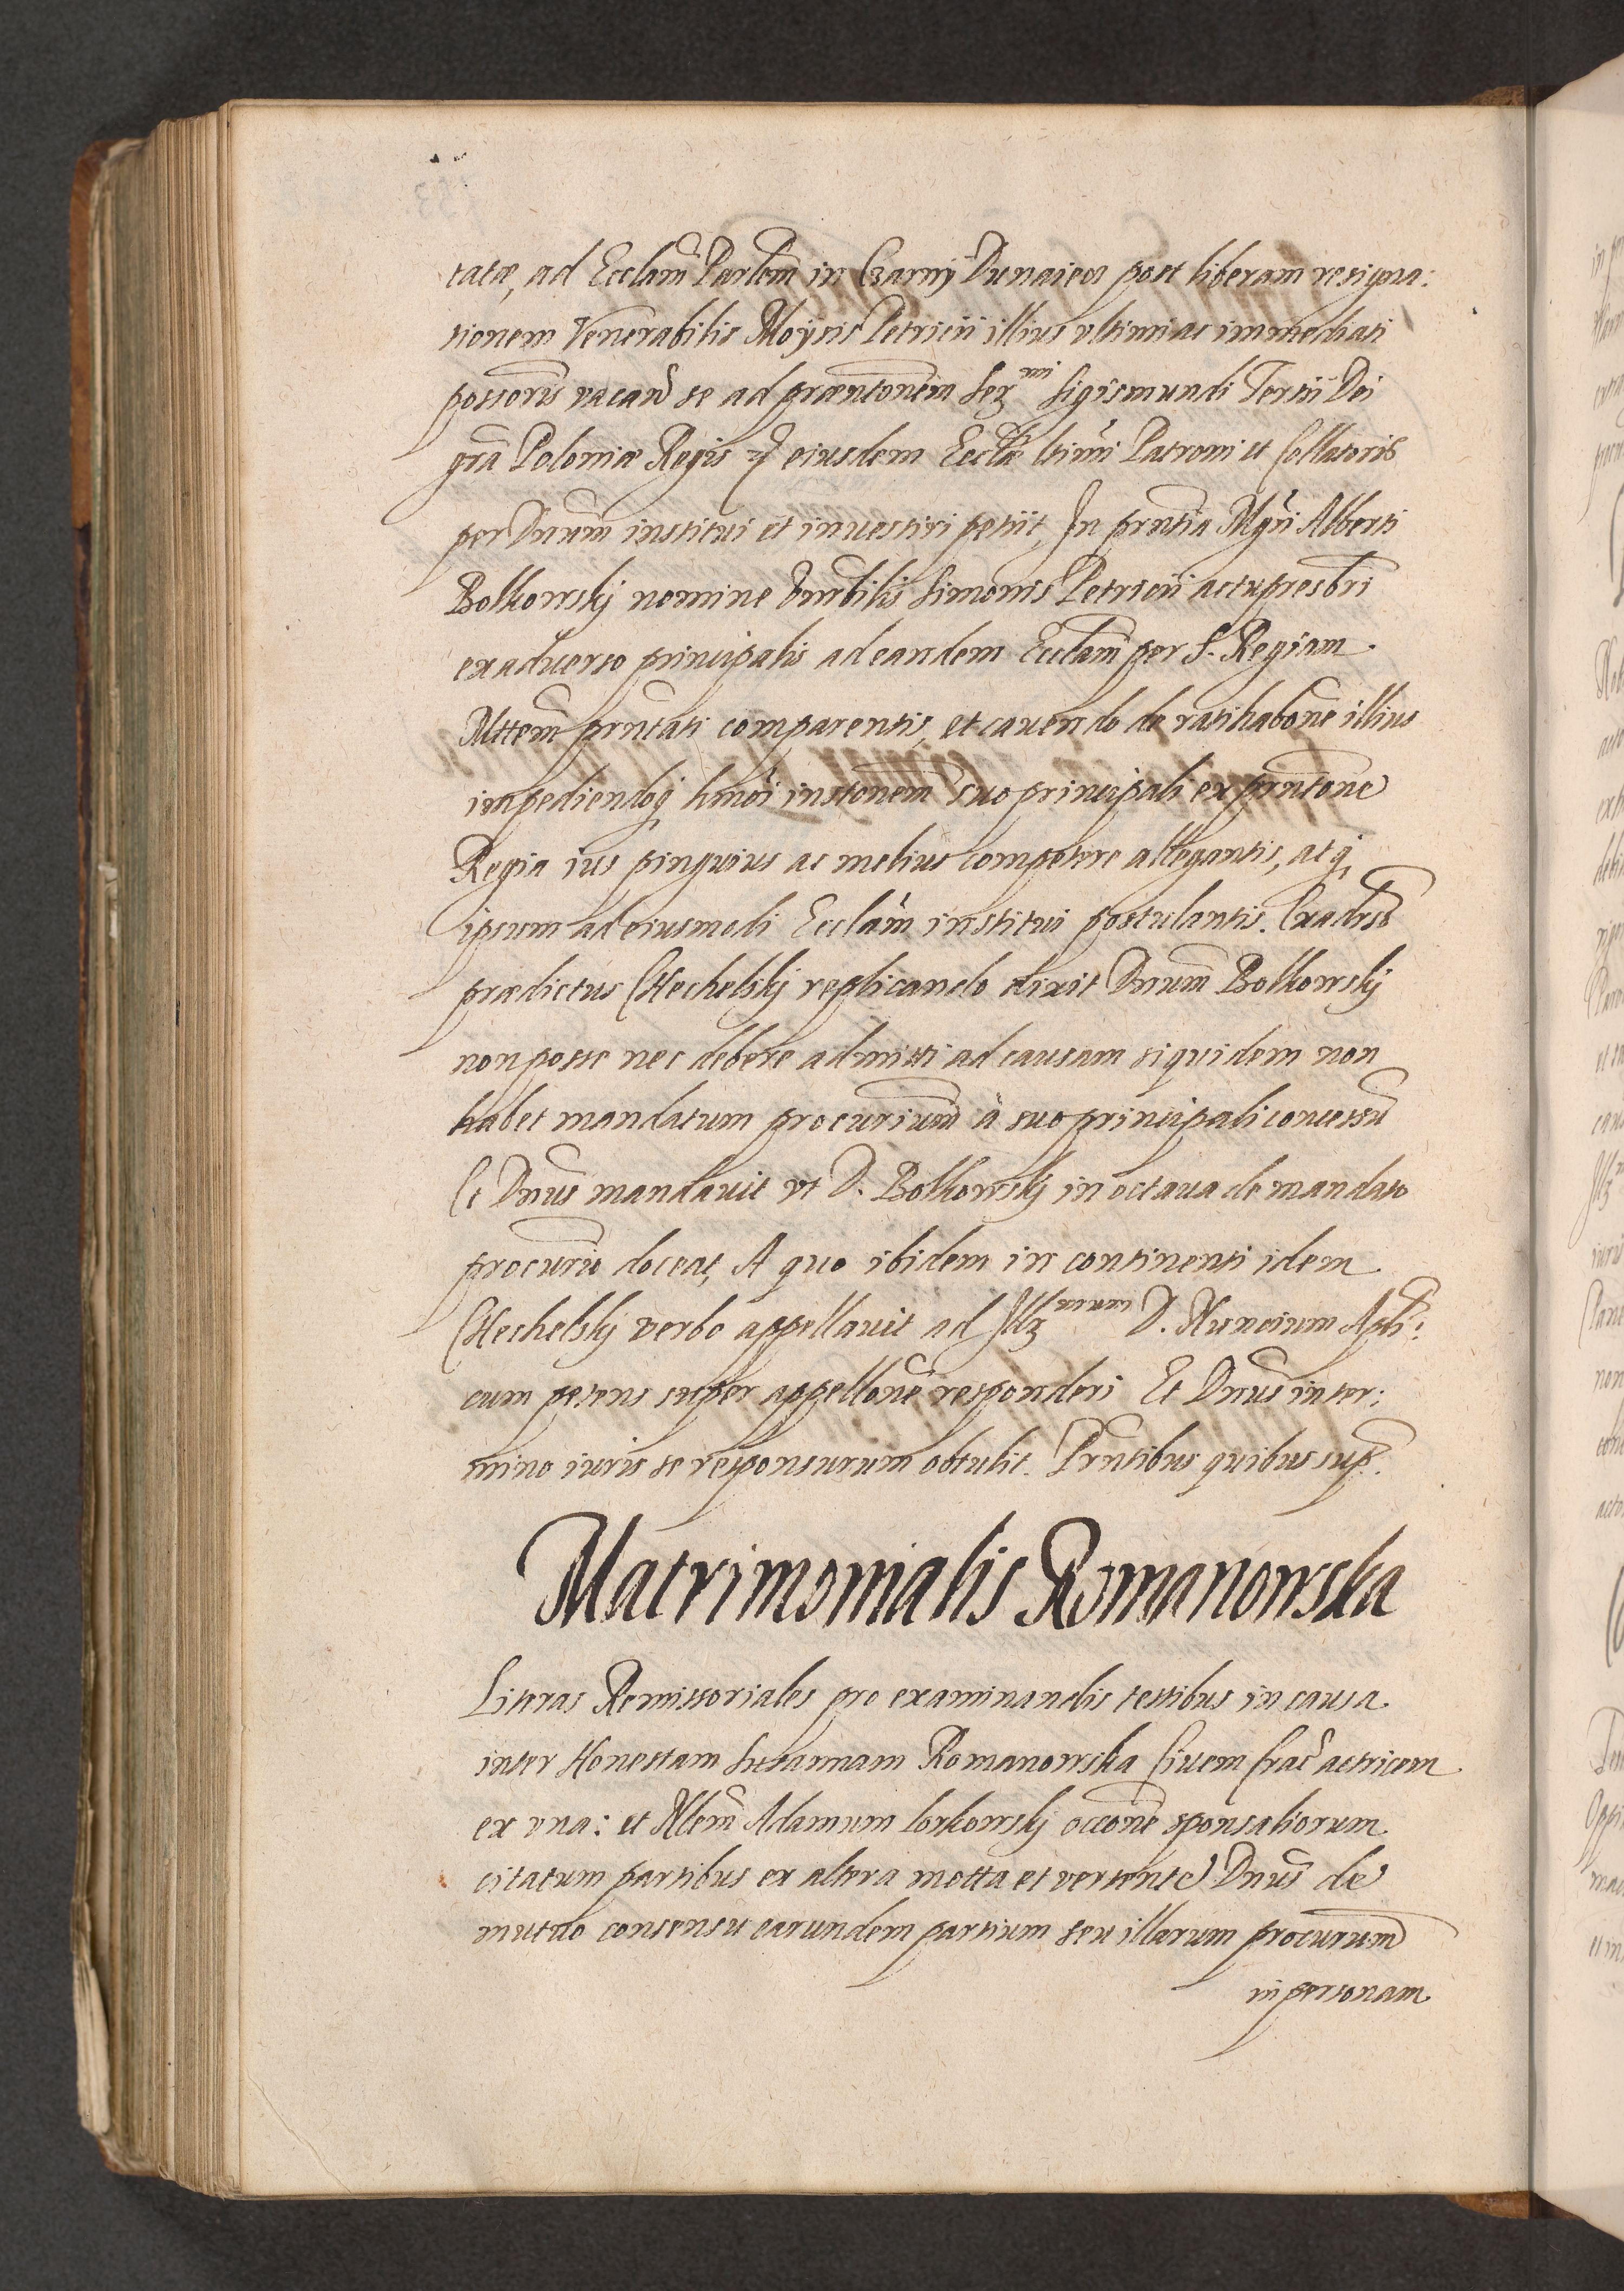 tatæ, ad Ecclam̃ Parlem̃ in Czarnÿ Dunaiecz post liberam resigna:
tionem Venerabilis Moÿsis Petricii illius vltimi ac immediati
possoris̃ vacañ se ad præntonem̃ Serᵐⁱ Sigismundi Tertii Dei
grã Poloniæ Regis eiusdem Ecclæ ltimi Patroni et Collatoris
per Dnum̃ institui et inuestiri petiit, In prñtia Mgri Alberti
Bolkowskj nomine Vnrbilis Simonis Petricii actu presbri
ex aduerso principalis ad eandem Ecclam̃ per S. Regiam
Mttem̃ prñtati comparentis, et cauendo de ratihabone illius
impediendoq hmõi instonem̃ suo principali ex prñtone
Regia ius pinguius ac melius competere allegantis, atq,
ipsum ad eiusmodi Ecclam̃ institui postulantis. Ex adrso
prædictus Chechelskj replicando dixit Dnum̃ Bolkowskj
non posse nec debere admitti ad causam siquidem non
habet mandatum procurium̃ à suo principali concessũ
Et Dnus̃ mandauit vt D. Bolkowskj in octaua de mandato
procurio doceat, A quo ibidem in continenti idem
Chechelskj verbo appellauit ad Illᵐᵘᵐ D. Nuncium Apli:
cum petens super appellone responderi Et Dnus̃ in ter:
mino iuris se responsurum obtulit. Prñtibus quibus sup.
Matrimonialis Romanowska
Literas Remissoriales pro examinandis testibus in causa
inter Honestam Susannam Romanowska Ciuem Crac̃ actricem
ex vna: et Nlem̃ Adamum Lorkowskj occone sponsaliorum
citatum partibus ex altera motta et vertente Dnus̃ de
mutuo consensu earundem partium seu illarum procurum̃
in personam